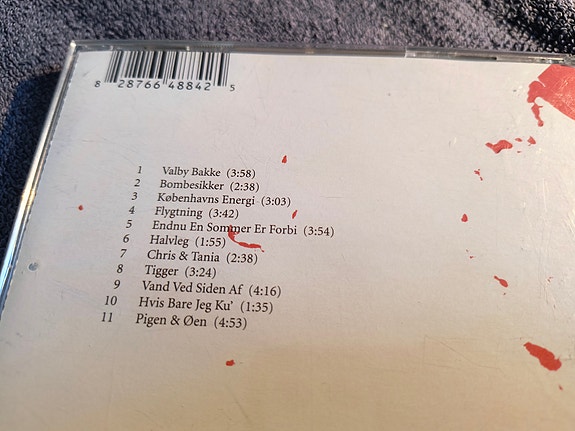 8 28766 48842 5
1 Valby Bakke (3:58)
2 Bombesikker (2:38)
3 Københavns Energi (3:03)
4 Flygtning (3:42)
5 Endnu En Sommer Er Forbi (3:54)
6 Halvleg (1:55)
7 Chris & Tania (2:38)
8 Tigger (3:24)
9 Vand Ved Siden Af (4:16)
10 Hvis Bare Jeg Ku' (1:35)
11 Pigen & Øen (4:53)